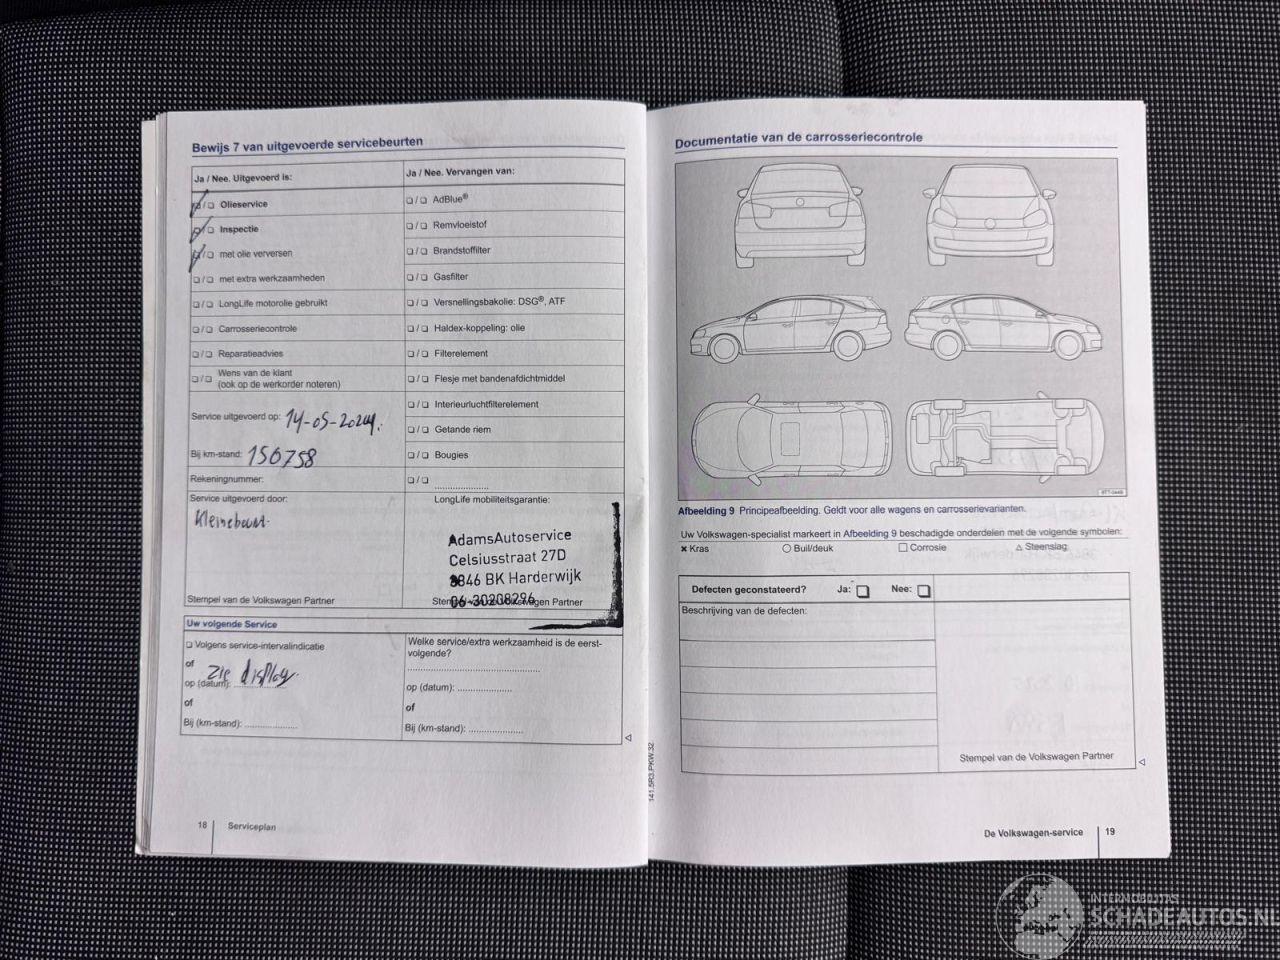 Bewijs 7 van uitgevoerde servicebeurten
Ja / Nee. Uitgevoerd is:
❏ / ❏ Olieservice
❏ / ❏ Inspectie
❏ / ❏ met olie verversen
❏ / ❏ met extra werkzaamheden
❏ / ❏ LongLife motorolie gebruikt
❏ / ❏ Carrosseriecontrole
❏ / ❏ Reparatieadvies
❏ / ❏ Wens van de klant
(ook op de werkorder noteren)
Service uitgevoerd op: 14-05-2024.
Bij km-stand: 150758
Rekeningnummer:
Service uitgevoerd door:
Stempel van de Volkswagen Partner
Ja / Nee. Vervangen van:
❏ / ❏ AdBlue®
❏ / ❏ Remvloeistof
❏ / ❏ Brandstoffilter
❏ / ❏ Gasfilter
❏ / ❏ Versnellingsbakolie: DSG®, ATF
❏ / ❏ Haldex-koppeling: olie
❏ / ❏ Filterelement
❏ / ❏ Flesje met bandenafdichtmiddel
❏ / ❏ Interieurluchtfilterelement
❏ / ❏ Getande riem
❏ / ❏ Bougies
❏ / ❏ ......................
LongLife mobiliteitsgarantie:
AdamsAutoservice
Celsiusstraat 27D
3846 BK Harderwijk
06-30208296
Stempel van de Volkswagen Partner
Uw volgende Service
❏ Volgens service-intervalindicatie
of
op (datum): zie display
of
Bij (km-stand): ....................
Welke service/extra werkzaamheid is de eerst-
volgende?
......................................................
op (datum): ....................
of
Bij (km-stand): ....................
18 Serviceplan
141.5R3.PKW.32
Documentatie van de carrosseriecontrole
Afbeelding 9 Principeafbeelding. Geldt voor alle wagens en carrosserievarianten.
Uw Volkswagen-specialist markeert in Afbeelding 9 beschadigde onderdelen met de volgende symbolen:
✖ Kras ○ Buil/deuk □ Corrosie △ Steenslag
Defecten geconstateerd? Ja: ❏ Nee: ❏
Beschrijving van de defecten:
Stempel van de Volkswagen Partner
De Volkswagen-service 19
INTERMOBILITAS
SCHADEAUTOS.NL